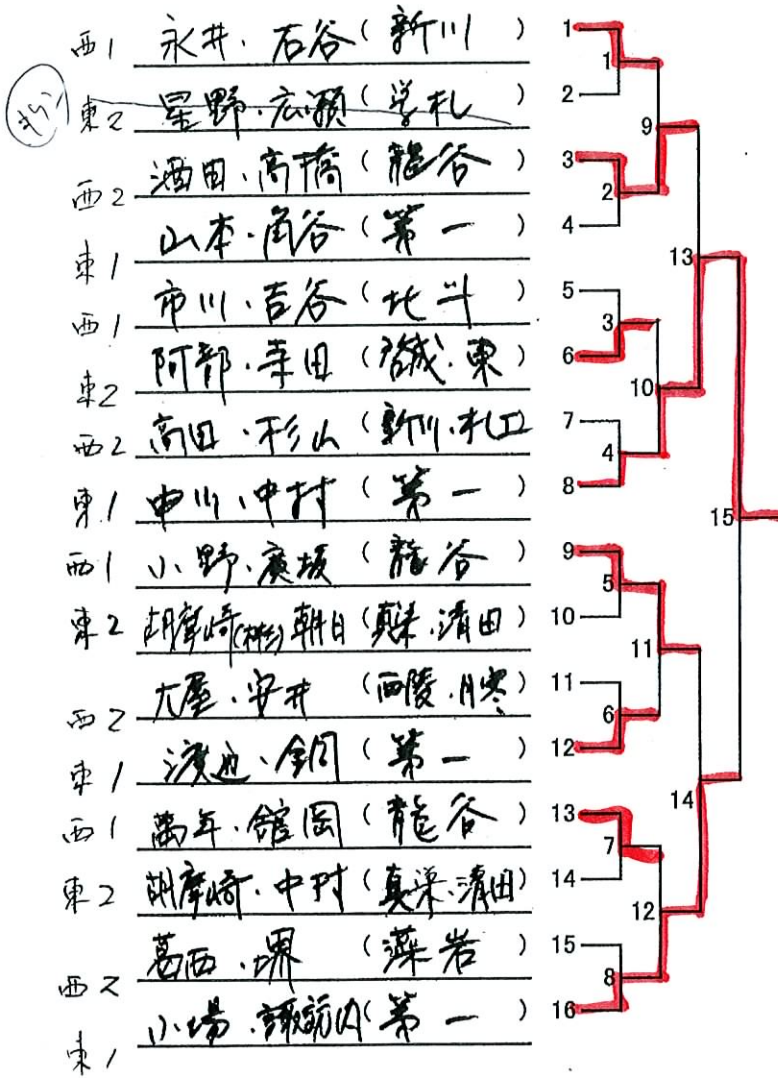 西1 永井・石谷(新川) 1
東2 星野・広瀬(学札) 2
西2 酒田・高橋(龍谷) 3
東1 山本・角谷(第一) 4
西1 市川・吉谷(北斗) 5
東2 阿部・幸田(啓成・東) 6
西2 高田・杉山(新川・札工) 7
東1 中川・中村(第一) 8
西1 小野・廣坂(龍谷) 9
東2 胡摩崎 朝日(真栄・清田) 10
西2 大屋・安井(西陵・月寒) 11
東1 渡辺・(第一) 12
西1 萬年・舘岡(龍谷) 13
東2 胡摩崎・中村(真栄・清田) 14
西2 葛西・堺(藻岩) 15
東1 小場・諏訪内(第一) 16
1
9
2
13
3
10
4
15
5
11
6
14
7
12
8